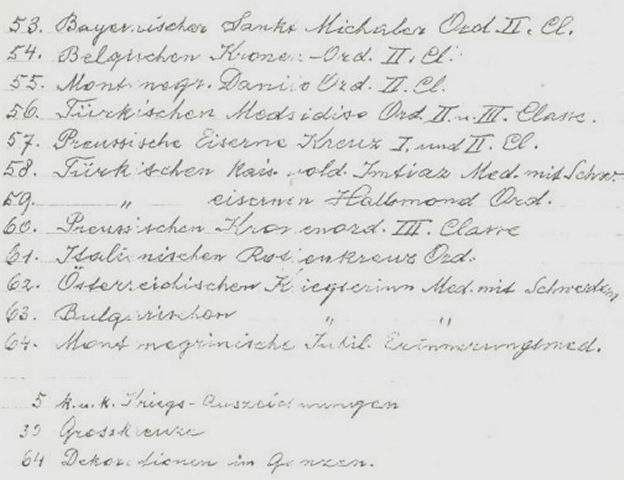 53. Bayerischer Sankt Michaler Ord. II. Cl.
54. Belgischen Kronen-Ord. II. Cl.
55. Montenegr. Danilo Ord. II. Cl.
56. Türkischen Medsidiso Ord. II u. III. Classe.
57. Preussische Eiserne Kreuz I. und II. Cl.
58. Türkischen Kais. Gold. Imtiaz Med. mit Schw.
59. " eisernen Halbmond Ord.
60. Preussischen Kronenord. III. Classe
61. Italienischen Rosenkreuz Ord.
62. Österreichischen Kriegserinn Med. mit Schwertern
63. Bulgarischen " "
64. Montenegrinische Jubil. Erinnerungsmed.
5 k. u. k. Kriegs-Auszeichnungen
39 Grosskreuze
64 Dekorationen im Ganzen.